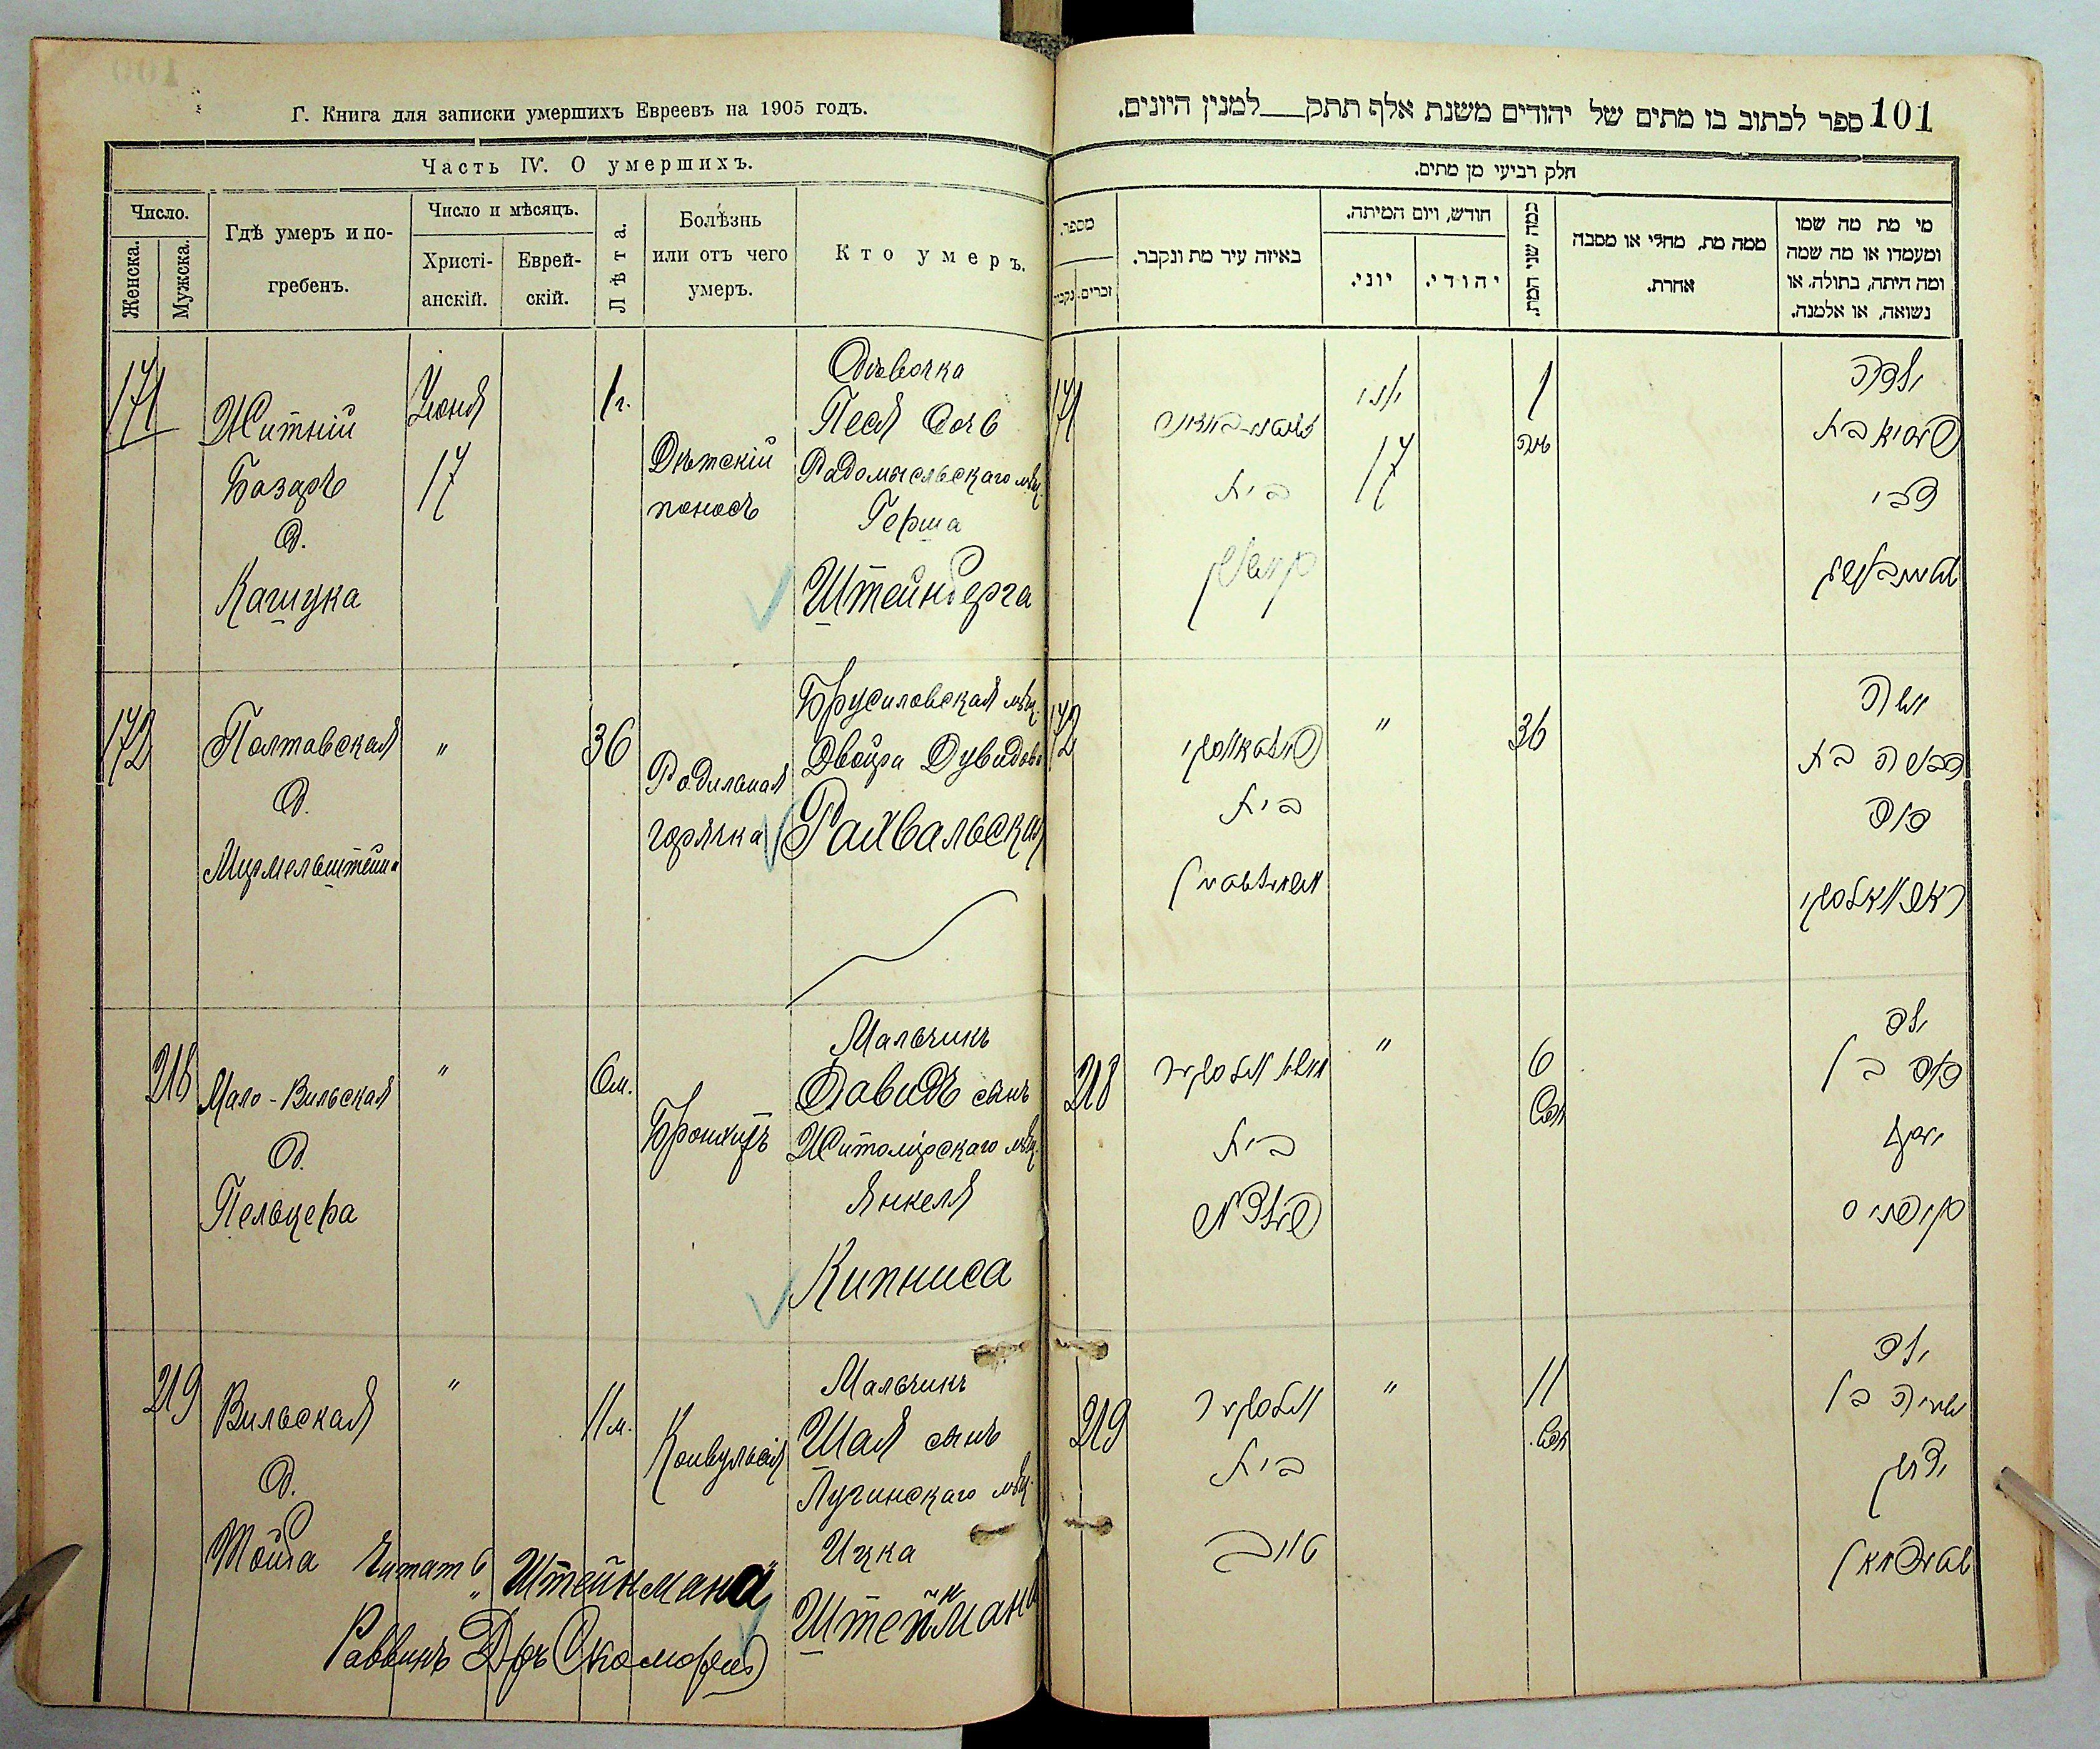 Г. Книга для записки умершихъ Евреевъ на 1905 годъ.
Часть IV. О умершихъ.
Число.
Женска.
Мужска.
Гдѣ умеръ и по-
гребенъ.
Число и мѣсяцъ.
Христі-
анскій.
Еврей-
скій.
Лѣта.
Болѣзнь
или отъ чего
умеръ.
Кто умеръ.
171
Житній
Базаръ
д.
Кашука
Іюня
17
1 г.
Дѣтскій
поносъ
Дѣвочка
Песя дочь
Радомысльскаго мѣщ.
Герша
Штейнберга
172
Полтавская
д.
Мирмельштейна
"
36
Родильная
горячка
Брусиловская мѣщ.
Двойра Дувидова
Рахвальская
218
Мало-Вильская
д.
Пельцера
"
6 м.
Бронхитъ
Мальчикъ
Давидъ сынъ
Житомірскаго мѣщ.
Янкеля
Кипниса
219
Вильская
д.
"
11 м.
Конвульсія
Мальчикъ
Шая сынъ
Лугинскаго мѣщ.
Ицка
Штейнмана
Читать „Штейнмана"
Раввинъ Д-ръ Скоморовскій
101
ספר לכתוב בו מתים של יהודים משנת אלף תתק___למנין היונים.
חלק רביעי מן מתים.
מספר.
נקבו׳
זכרים.
באיזה עיר מת ונקבר.
חודש, ויום המיתה.
יוני.
יהודי.
כמה שני המת.
ממה מת, מחלי או מסבה
אחרת.
מי מת מה שמו
ומעמדו או מה שמה
ומה היתה, בתולה, או
נשואה, או אלמנה.
171
בית
קאשוק
יוני
17
1
שנה
ילדה
פעסיא בת
צבי
שטיינבערג
172
פאלטאווסקי
בית
מירמלשטיין
"
36
אשה
דבורה בת
דוד
ראחוואלסקי
218
בית
פעלצער
"
6
חדש
ילד
דוד בן
יעקב
קיפניס
219
ווילסקער
בית
"
11
חדש.
ילד
ישעיה בן
יצחק
שטיינמאן